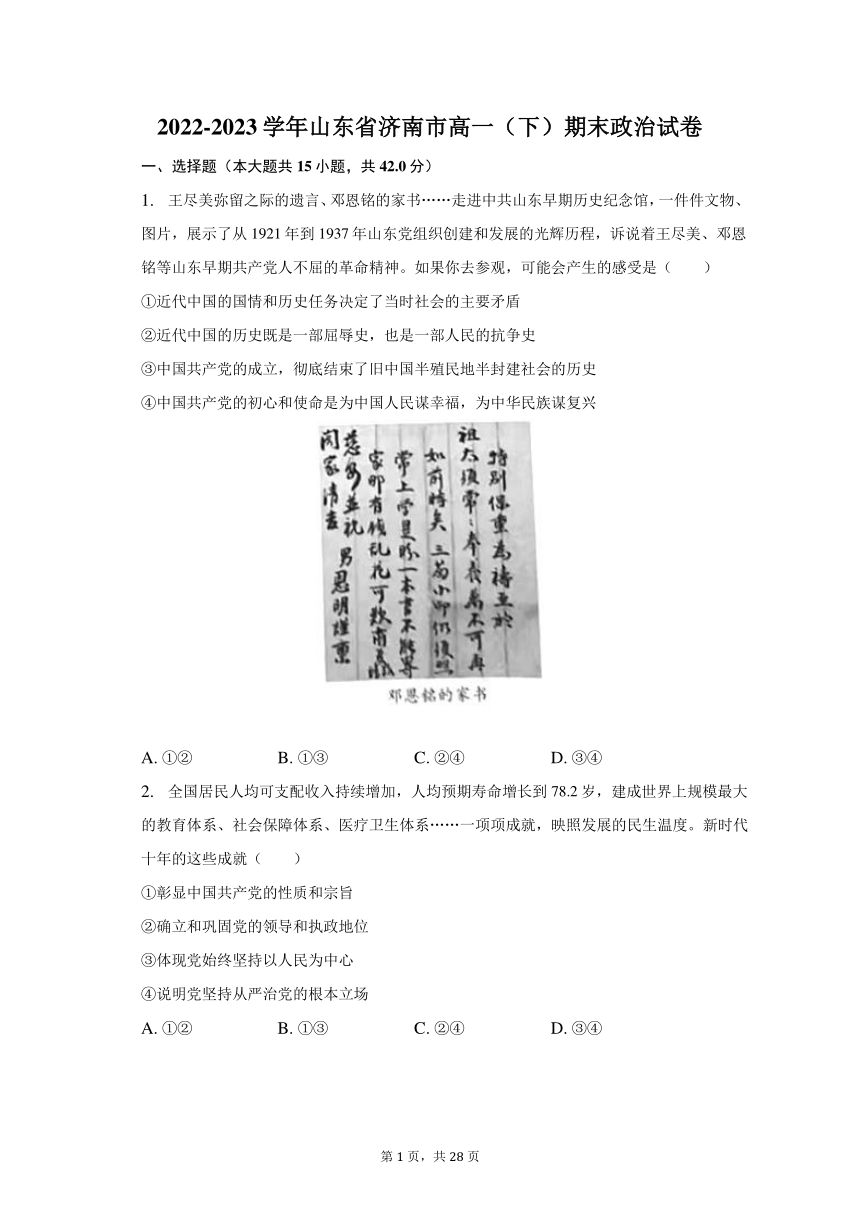 2022-2023学年山东省济南市高一（下）期末政治试卷
一、选择题（本大题共15小题，共42.0分）
1. 王尽美弥留之际的遗言、邓恩铭的家书……走进中共山东早期历史纪念馆，一件件文物、
图片，展示了从1921年到1937年山东党组织创建和发展的光辉历程，诉说着王尽美、邓恩
铭等山东早期共产党人不屈的革命精神。如果你去参观，可能会产生的感受是（　　）
①近代中国的国情和历史任务决定了当时社会的主要矛盾
②近代中国的历史既是一部屈辱史，也是一部人民的抗争史
③中国共产党的成立，彻底结束了旧中国半殖民地半封建社会的历史
④中国共产党的初心和使命是为中国人民谋幸福，为中华民族谋复兴
特别保重为祷至於
祖太须常々奉衣万不可再
如前時矣 三苗小即仍须照
常上学是盼一本書不能
家即有可
慈安並祝 男恩明谨禀
阖家清吉
邓恩铭的家书
A. ①② B. ①③ C. ②④ D. ③④
2. 全国居民人均可支配收入持续增加，人均预期寿命增长到78.2岁，建成世界上规模最大
的教育体系、社会保障体系、医疗卫生体系……一项项成就，映照发展的民生温度。新时代
十年的这些成就（　　）
①彰显中国共产党的性质和宗旨
②确立和巩固党的领导和执政地位
③体现党始终坚持以人民为中心
④说明党坚持从严治党的根本立场
A. ①② B. ①③ C. ②④ D. ③④
第1页，共28页